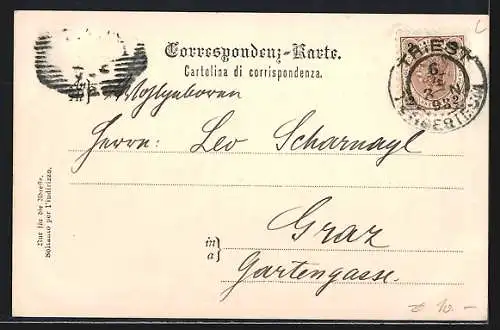 Correspondenz-Karte.
Cartolina di corrispondenza.
Wohlgeboren
Herrn: Leo Scharnagl
in
a}
Graz
Gartengasse.
Nur für die Adresse.
Soltanto per l'indirizzo.
TRIEST
TERGESTEUM